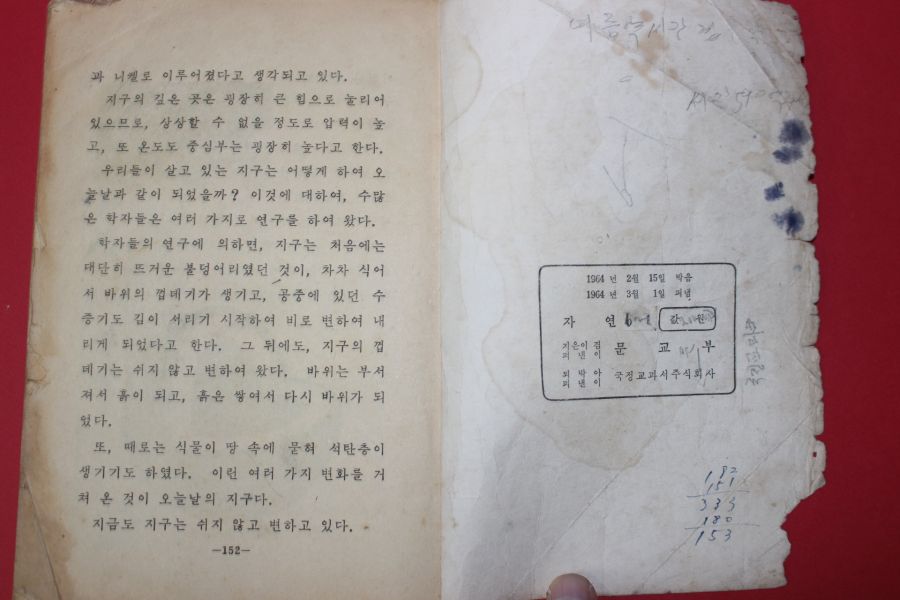 과 니켈로 이루어졌다고 생각되고 있다.
지구의 깊은 곳은 굉장히 큰 힘으로 눌리어
있으므로, 상상할 수 없을 정도로 압력이 높
고, 또 온도도 중심부는 굉장히 높다고 한다.
우리들이 살고 있는 지구는 어떻게 하여 오
늘날과 같이 되었을까? 이것에 대하여, 수많
은 학자들은 여러 가지로 연구를 하여 왔다.
학자들의 연구에 의하면, 지구는 처음에는
대단히 뜨거운 불덩어리였던 것이, 차차 식어
서 바위의 껍데기가 생기고, 공중에 있던 수
증기도 김이 서리기 시작하여 비로 변하여 내
리게 되었다고 한다. 그 뒤에도, 지구의 껍
데기는 쉬지 않고 변하여 왔다. 바위는 부서
져서 흙이 되고, 흙은 쌓여서 다시 바위가 되
었다.
또, 때로는 식물이 땅 속에 묻혀 석탄층이
생기기도 하였다. 이런 여러 가지 변화를 거
쳐 온 것이 오늘날의 지구다.
지금도 지구는 쉬지 않고 변하고 있다.
—152—
1964 년 2월 15일 박음
1964 년 3월 1일 펴냄
자 연 6-1 값 원
지은이 겸
펴낸이 문교부
되박아
펴낸이 국정교과서주식회사
192
151
333
180
153